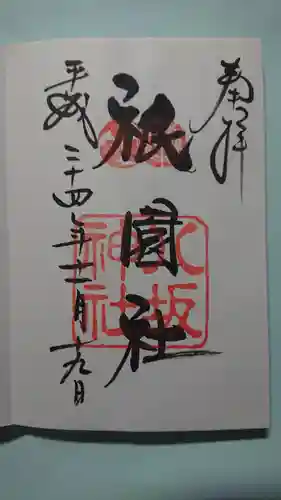 奉拝
祇園社
八坂神社
平成二十四年十一月十九日